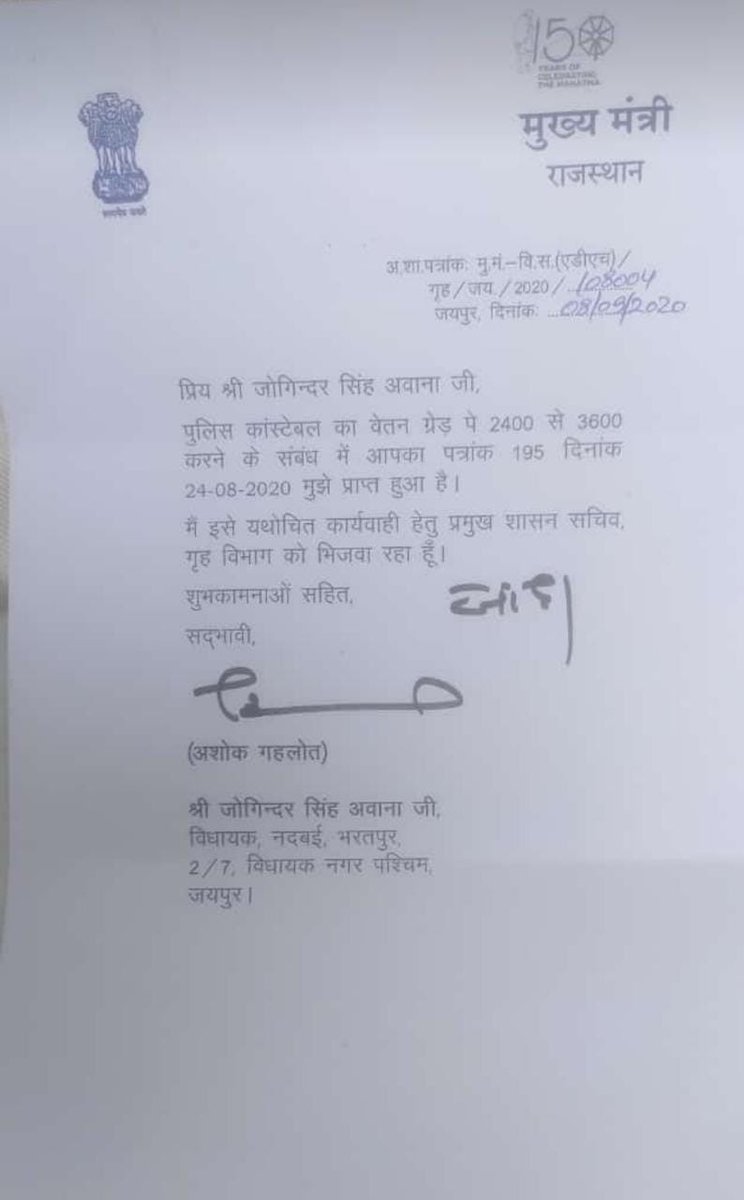 150
YEARS OF
CELEBRATING
THE MAHATMA
मुख्य मंत्री
राजस्थान
सत्यमेव जयते
अ.शा.पत्रांकः मु.मं.–वि.स.(एडीएच) /
गृह / जय. / 2020 / 108004
जयपुर, दिनांकः ...08/09/2020
प्रिय श्री जोगिन्दर सिंह अवाना जी,
पुलिस कांस्टेबल का वेतन ग्रेड़ पे 2400 से 3600
करने के संबंध में आपका पत्रांक 195 दिनांक
24-08-2020 मुझे प्राप्त हुआ है।
मैं इसे यथोचित कार्यवाही हेतु प्रमुख शासन सचिव,
गृह विभाग को भिजवा रहा हूँ।
शुभकामनाओं सहित,
सद्भावी,
(अशोक गहलोत)
श्री जोगिन्दर सिंह अवाना जी,
विधायक, नदबई, भरतपुर,
2/7, विधायक नगर पश्चिम,
जयपुर।